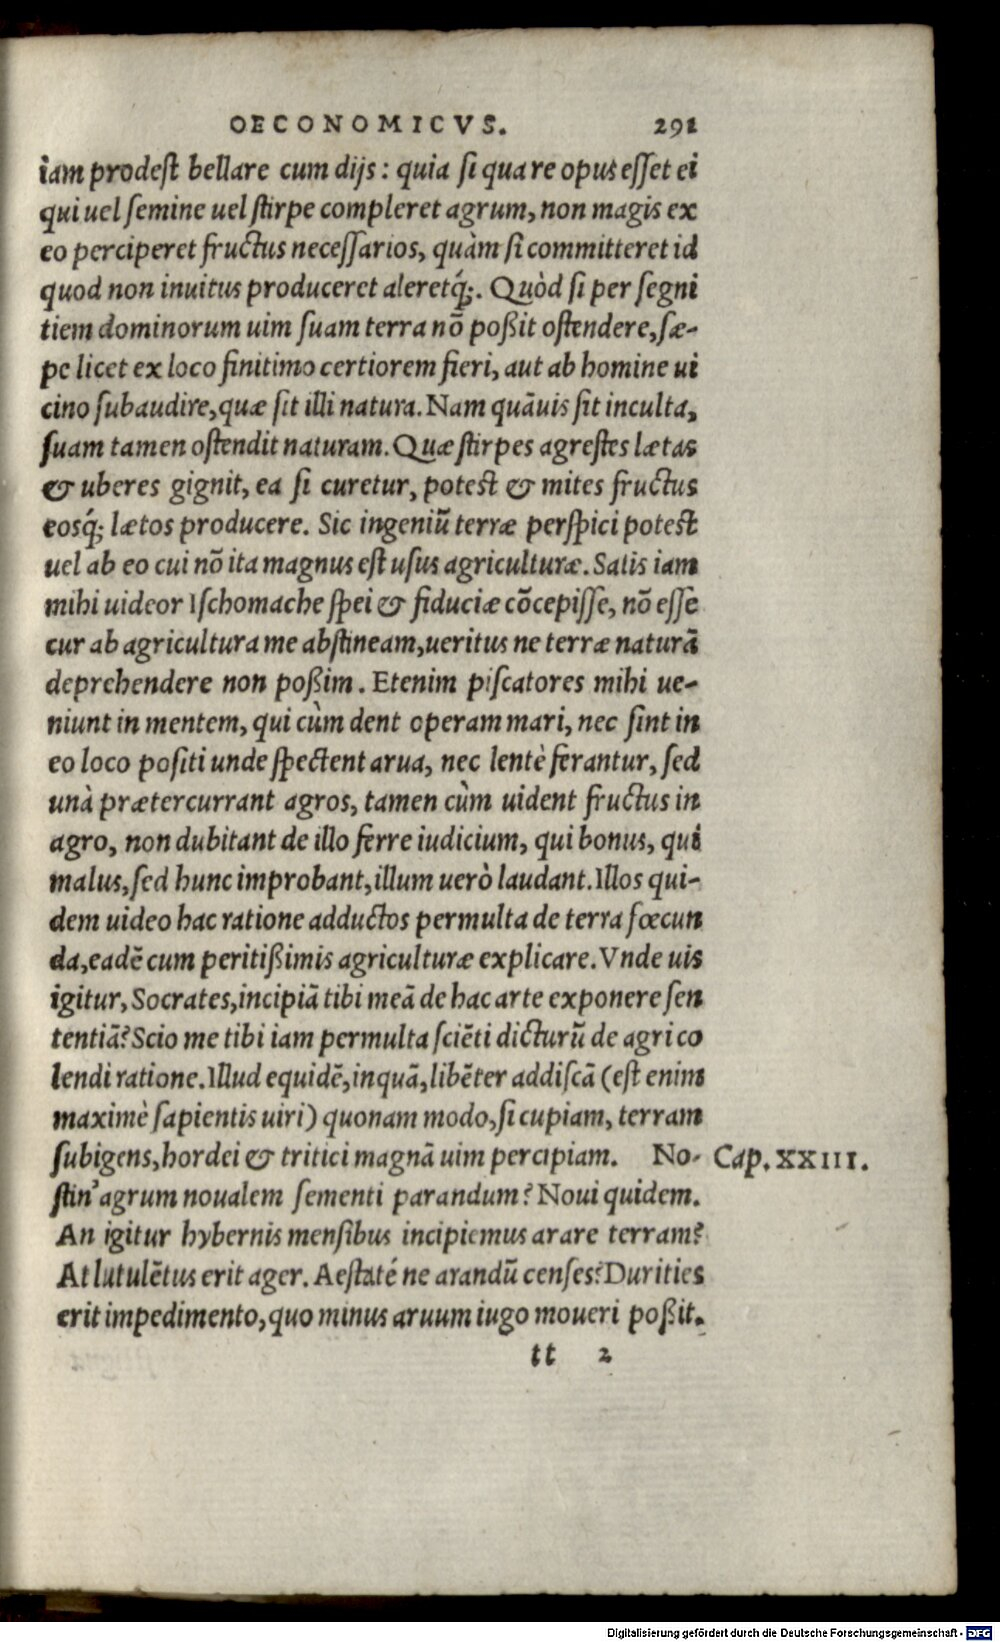 OECONOMICVS. 291
iam prodest bellare cum dijs: quia si qua re opus esset ei
qui uel semine uel stirpe compleret agrum, non magis ex
eo perciperet fructus necessarios, quàm si committeret id
quod non inuitus produceret aleretq́;. Quòd si per segni
tiem dominorum uim suam terra nō poßit ostendere, sæ-
pe licet ex loco finitimo certiorem fieri, aut ab homine ui
cino subaudire, quæ sit illi natura. Nam quāuis sit inculta,
suam tamen ostendit naturam. Quæ stirpes agrestes lætas
& uberes gignit, ea si curetur, potest & mites fructus
eosq́; lætos producere. Sic ingeniū terræ perspici potest
uel ab eo cui nō ita magnus est usus agriculturæ. Satis iam
mihi uideor Ischomache spei & fiduciæ cōcepisse, nō esse
cur ab agricultura me abstineam, ueritus ne terræ naturā
deprehendere non poßim. Etenim piscatores mihi ue-
niunt in mentem, qui cùm dent operam mari, nec sint in
eo loco positi unde spectent arua, nec lentè ferantur, sed
unà prætercurrant agros, tamen cùm uident fructus in
agro, non dubitant de illo ferre iudicium, qui bonus, qui
malus, sed hunc improbant, illum uerò laudant. Illos qui-
dem uideo hac ratione adductos permulta de terra fœcun
da, eadē cum peritißimis agriculturæ explicare. Vnde uis
igitur, Socrates, incipiā tibi meā de hac arte exponere sen
tentiā? Scio me tibi iam permulta sciēti dicturū de agri co
lendi ratione. Illud equidē, inquā, libēter addiscā (est enim
maximè sapientis uiri) quonam modo, si cupiam, terram
subigens, hordei & tritici magnā uim percipiam. No- Cap. XXIII.
stin' agrum noualem sementi parandum? Noui quidem.
An igitur hybernis mensibus incipiemus arare terram?
At lutulētus erit ager. Aestaté ne arandū censes? Durities
erit impedimento, quo minus aruum iugo moueri poßit.
tt 2
Digitalisierung gefördert durch die Deutsche Forschungsgemeinschaft - DFG